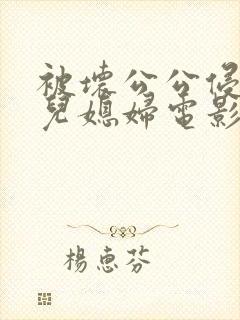 被壞公公侵
兒媳婦電影
楊惠芬